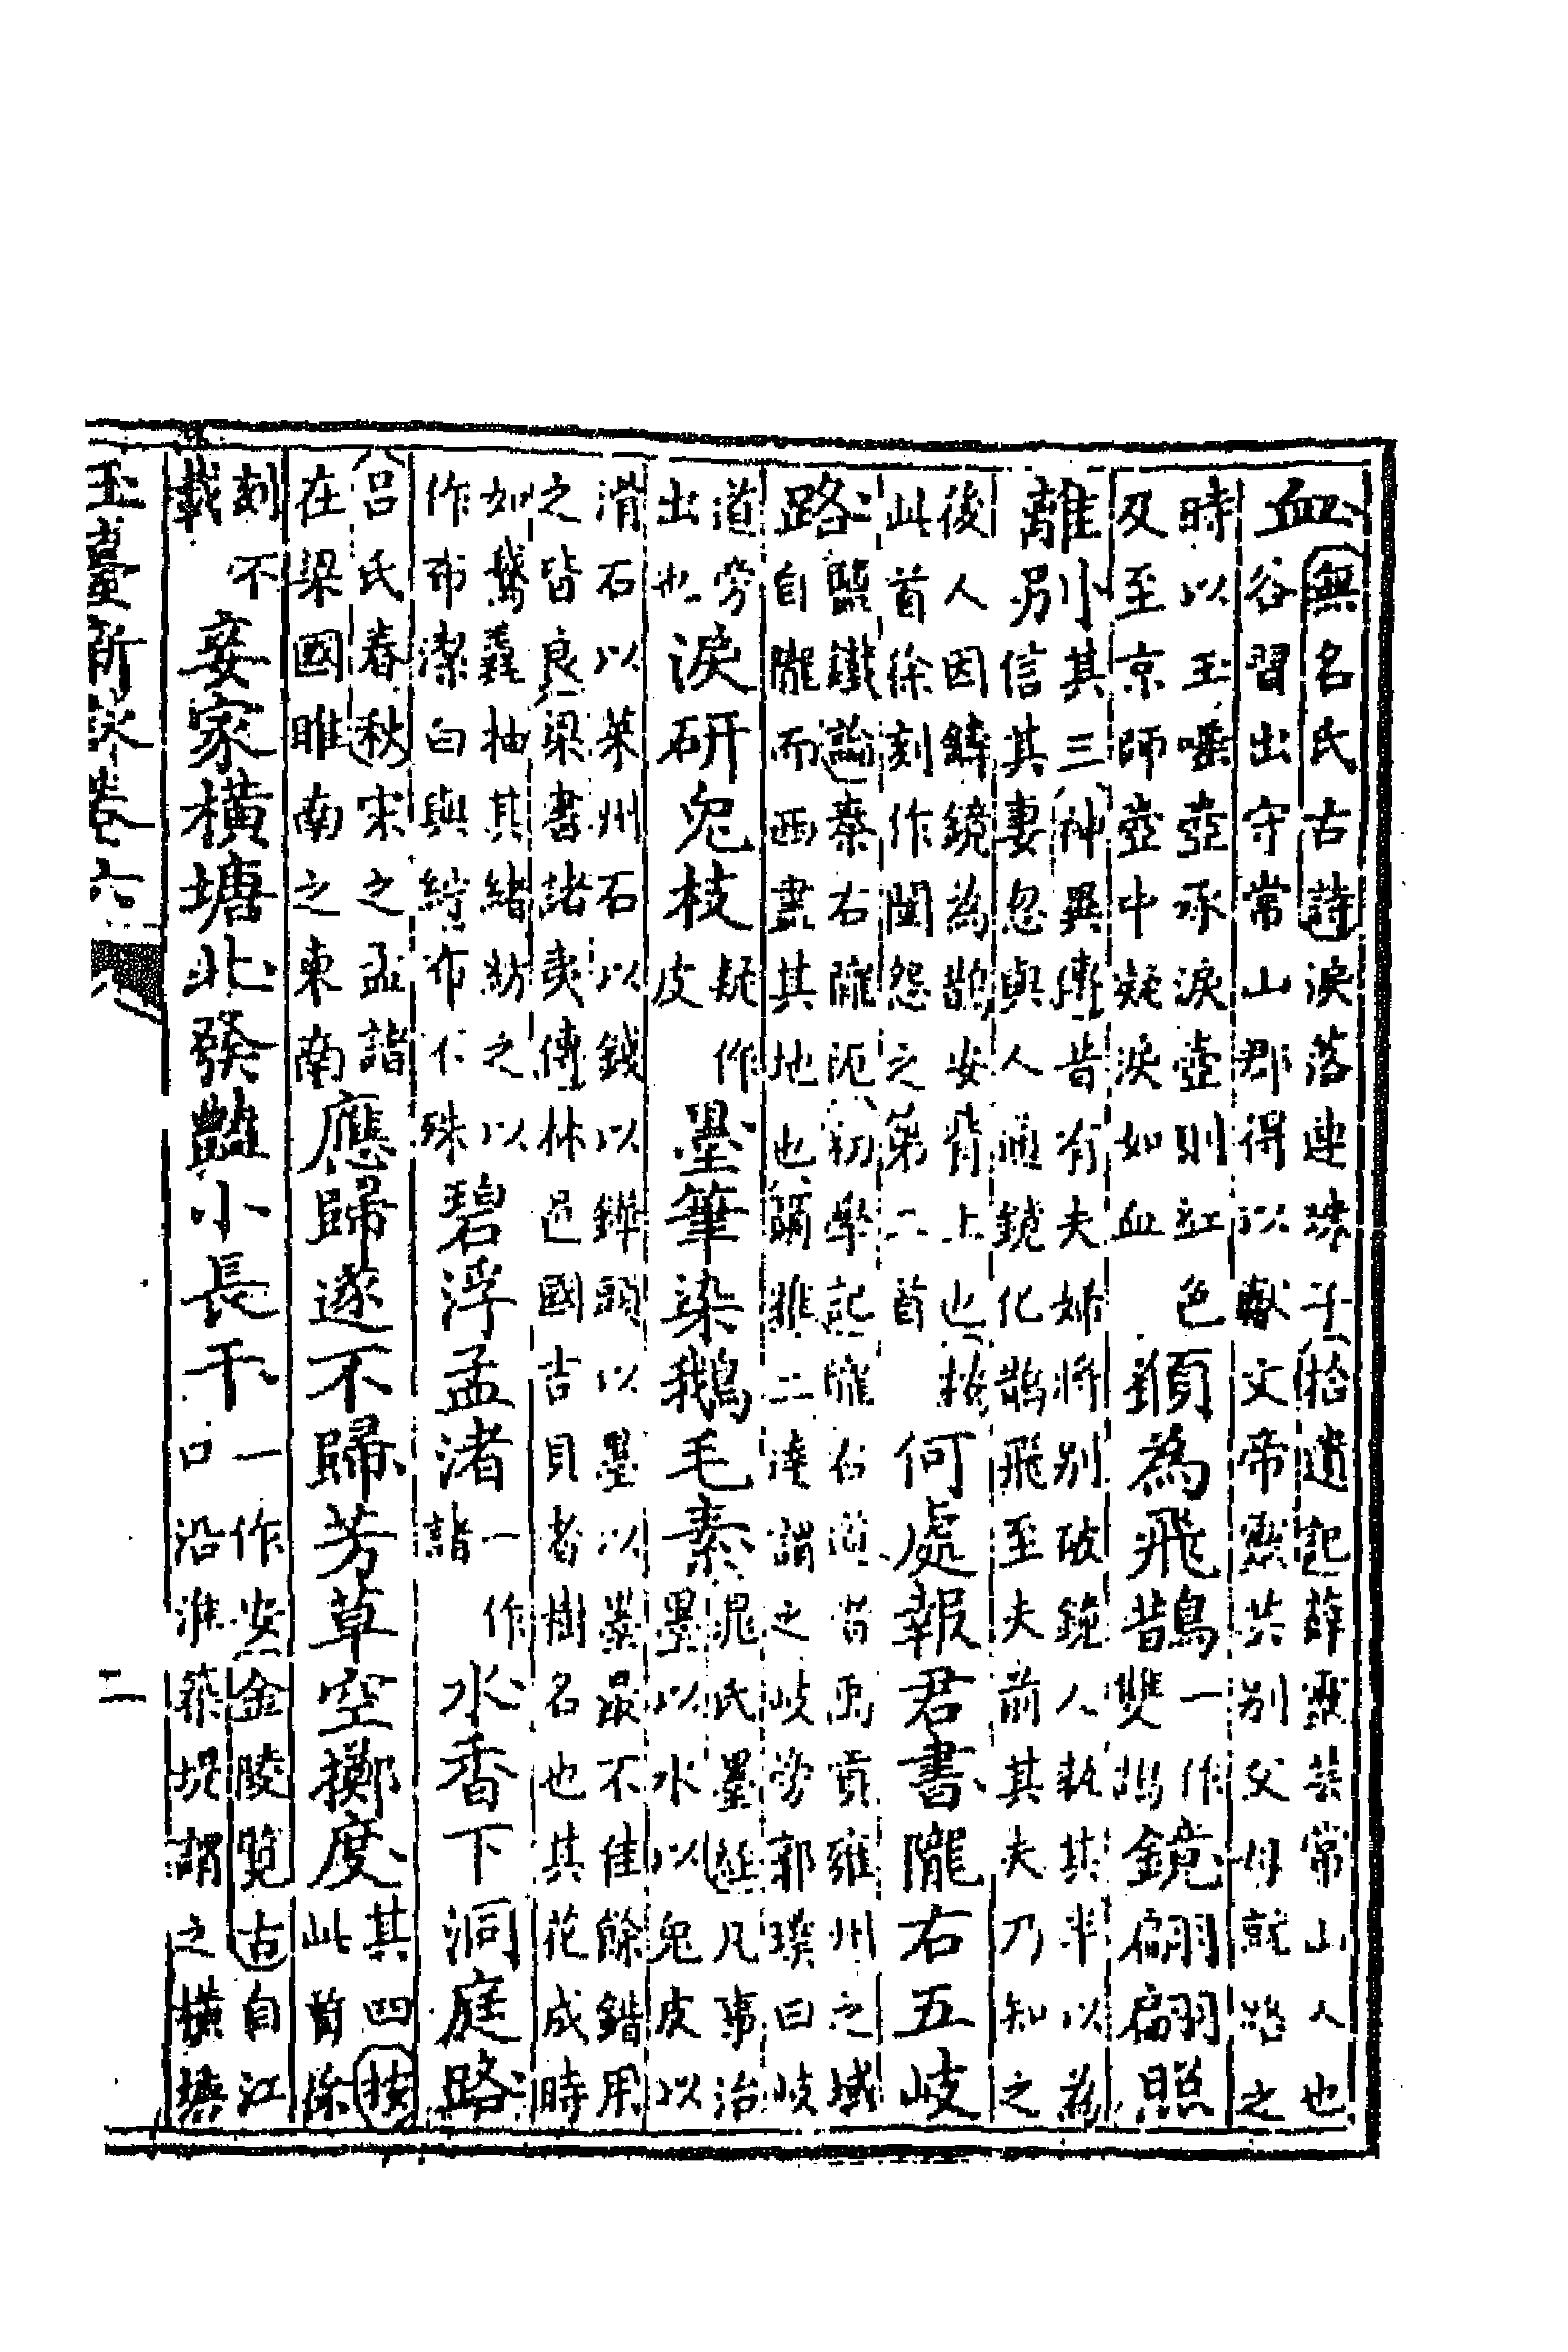 血無名氏古詩淚落連珠子拾遺記薛靈芸常山人也
谷習出守常山郡得以獻文帝靈芸別父母就路之
時以玉唾壺承淚壺則紅色
及至京師壺中凝淚如血
願為飛鵲一作雙鵲鏡翩翩照
離別小其三神異傳昔有夫婦將別破鏡人執其半以為
信其妻忽與人通鏡化鵲飛至夫前其夫乃知之
後人因鑄鏡為鵲安背上也按
此首徐刻作閨怨之第二首
何處報君書隴右五岐
路鹽鐵論秦右隴阨初學記隴右道者禹貢雍州之域
自隴而西盡其地也爾雅二達謂之岐旁郭璞曰岐
道旁
出也
淚研兔枝疑作
皮
墨筆染鵝毛素晁氏墨經凡事治
墨以水以兔皮以
滑石以萊州石以錢以鏵頭以墨以墨最不佳餘錯用
之皆良梁書諸夷傳林邑國吉貝者樹名也其花成時
如鵞毳抽其緒紡之以
作布潔白與紵布不殊
碧浮孟渚一作
諸
水香下洞庭路
呂氏春秋宋之孟諸
在梁國睢南之東南
應歸遂不歸芳草空擲度其四按
此首徐
刻不
載
妾家橫塘北發豔小長干一作安金陵覽古自江
口沿淮築堤謂之橫塘
玉臺新詠卷六
二